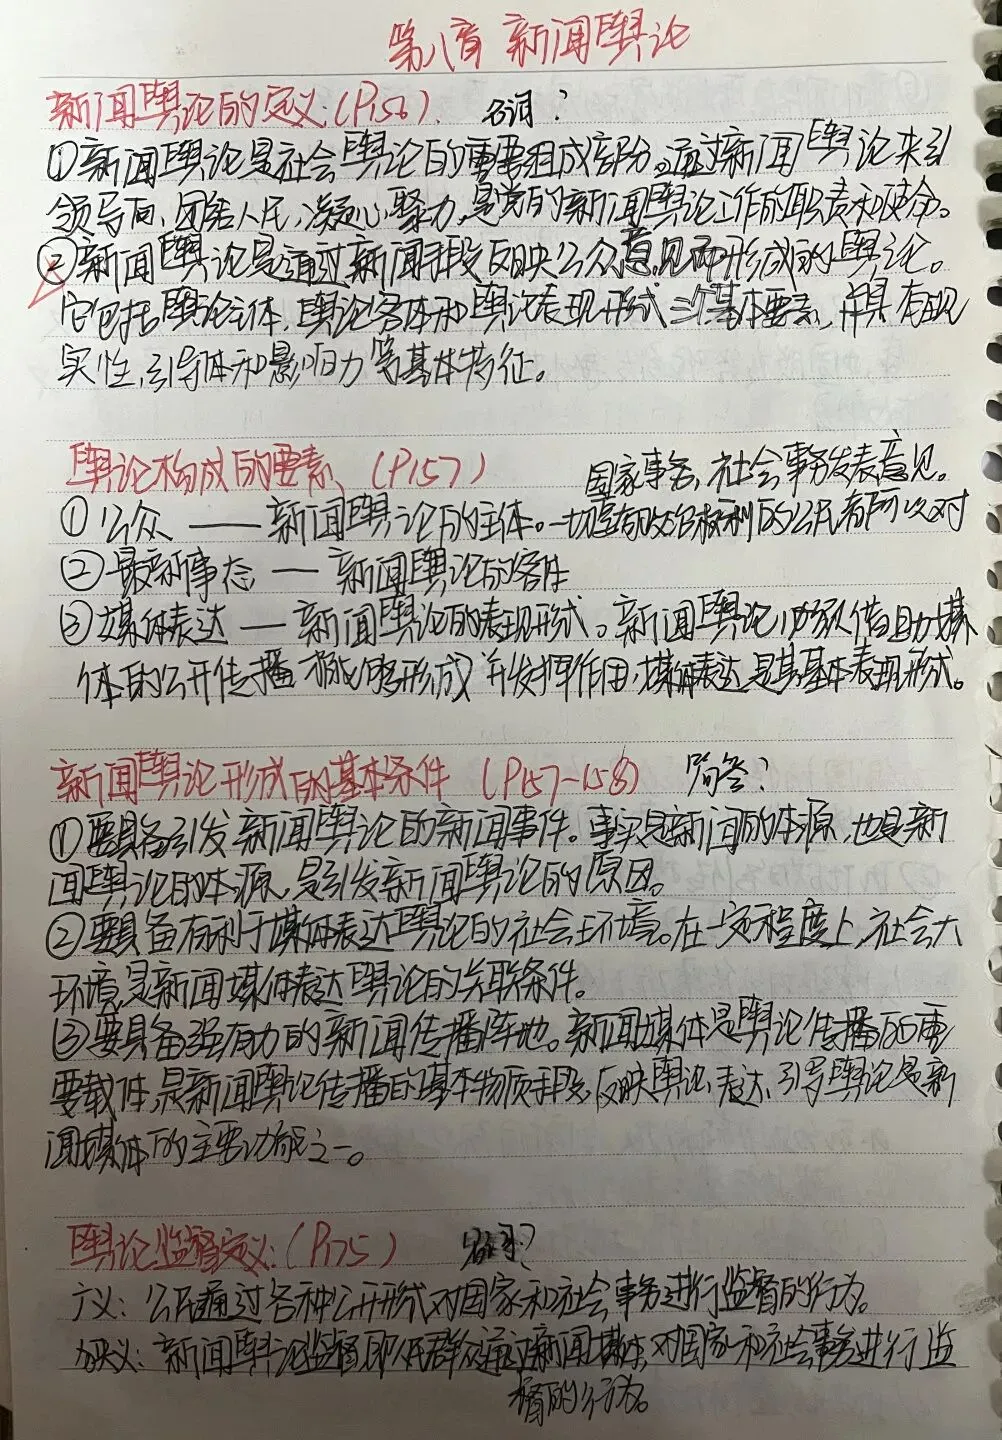 第八章 新闻舆论
新闻舆论的定义:(P156). 名词?
①新闻舆论是社会舆论的重要组成部分。通过新闻舆论来引
领导向,团结人民,凝心聚力,是党的新闻舆论工作的职责和使命。
②新闻舆论是通过新闻手段反映公众意见而形成的舆论。
它包括舆论主体,舆论客体和舆论表现形式三个基本要素,并具有现
实性,引导体和影响力等基本特征。
舆论构成的要素、(P157)
国家事务,社会事务发表意见。
①公众——新闻舆论的主体。一切享有政治权利的公民有所以对
②最新事态——新闻舆论的客体
③媒体表达——新闻舆论的表现形式。新闻舆论必须借助媒
体的公开传播才能够形成并发挥作用,媒体表达是其基本表现形式。
新闻舆论形成的基本条件 (P157-158) 简答?
①要具备引发新闻舆论的新闻事件。事实是新闻的本源,也是新
闻舆论的本源,是引发新闻舆论的原因。
②要具备有利于媒体表达舆论的社会环境。在一定程度上,社会大
环境是新闻媒体表达舆论的关联条件。
③要具备强有力的新闻传播阵地。新闻媒体是舆论传播的重
要载体,是新闻舆论传播的基本物质手段,反映舆论、表达、引导舆论是新
闻媒体的主要功能之一。
舆论监督定义:(P175)
广义:公民通过各种公开形式对国家和社会事务进行监督的行为。
狭义:新闻舆论监督即人民群众通过新闻媒体,对国家和社会事务进行监
督的行为。